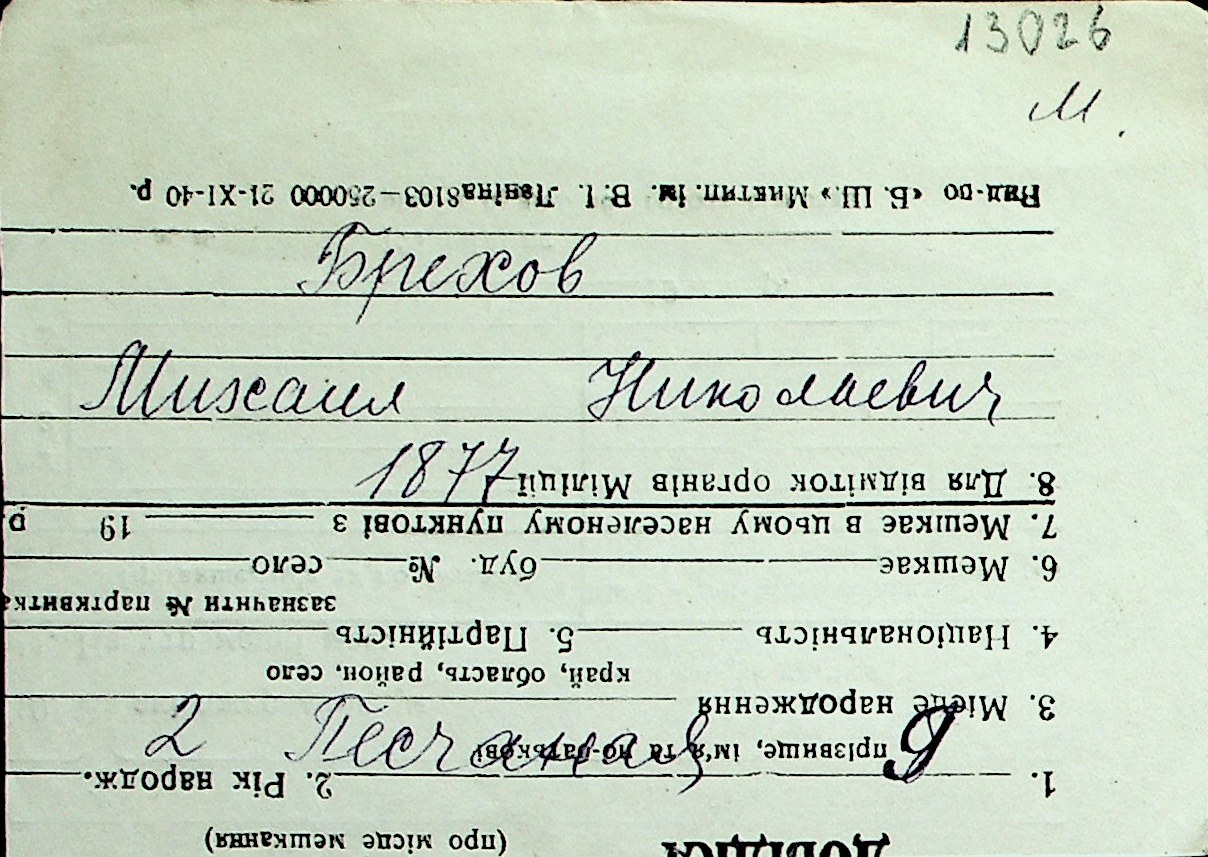 13026
М.
Брехов
Михаил Николаевич
1877
2 Песчаная 6
(про місце мешкання)
1. 2. Рік народж.
прізвище, ім'я та по-батькові
3. Місце народження
край, область, район, село
4. Національність 5. Партійність
зазначити № партквитка
6. Мешкає буд. № село
7. Мешкає в цьому населеному пункті з 19 р
8. Для відміток органів Міліції
Вид-во «Б. Ш.» Миктип. ім. В. І. Леніна 8103—250000 21-XI-40 р.